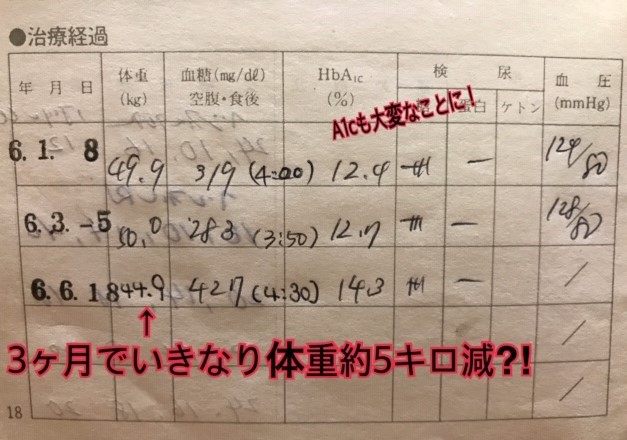 ●治療経過
年 月 日 体重 (kg) 血糖(mg/dl) 空腹・食後 HbA1C (%) 検 尿 蛋白 ケトン 血 圧 (mmHg)
A1cも大変なことに!
6. 1. 8 49.9 319 (4:00) 12.4 卅 − 124/80
6. 3. -5 50.0 283 (3:50) 12.7 卅 − 128/80
6. 6. 18 44.9 427 (4:30) 14.3 卅 − /
↑
3ヶ月でいきなり体重約5キロ減?!
/
/
18